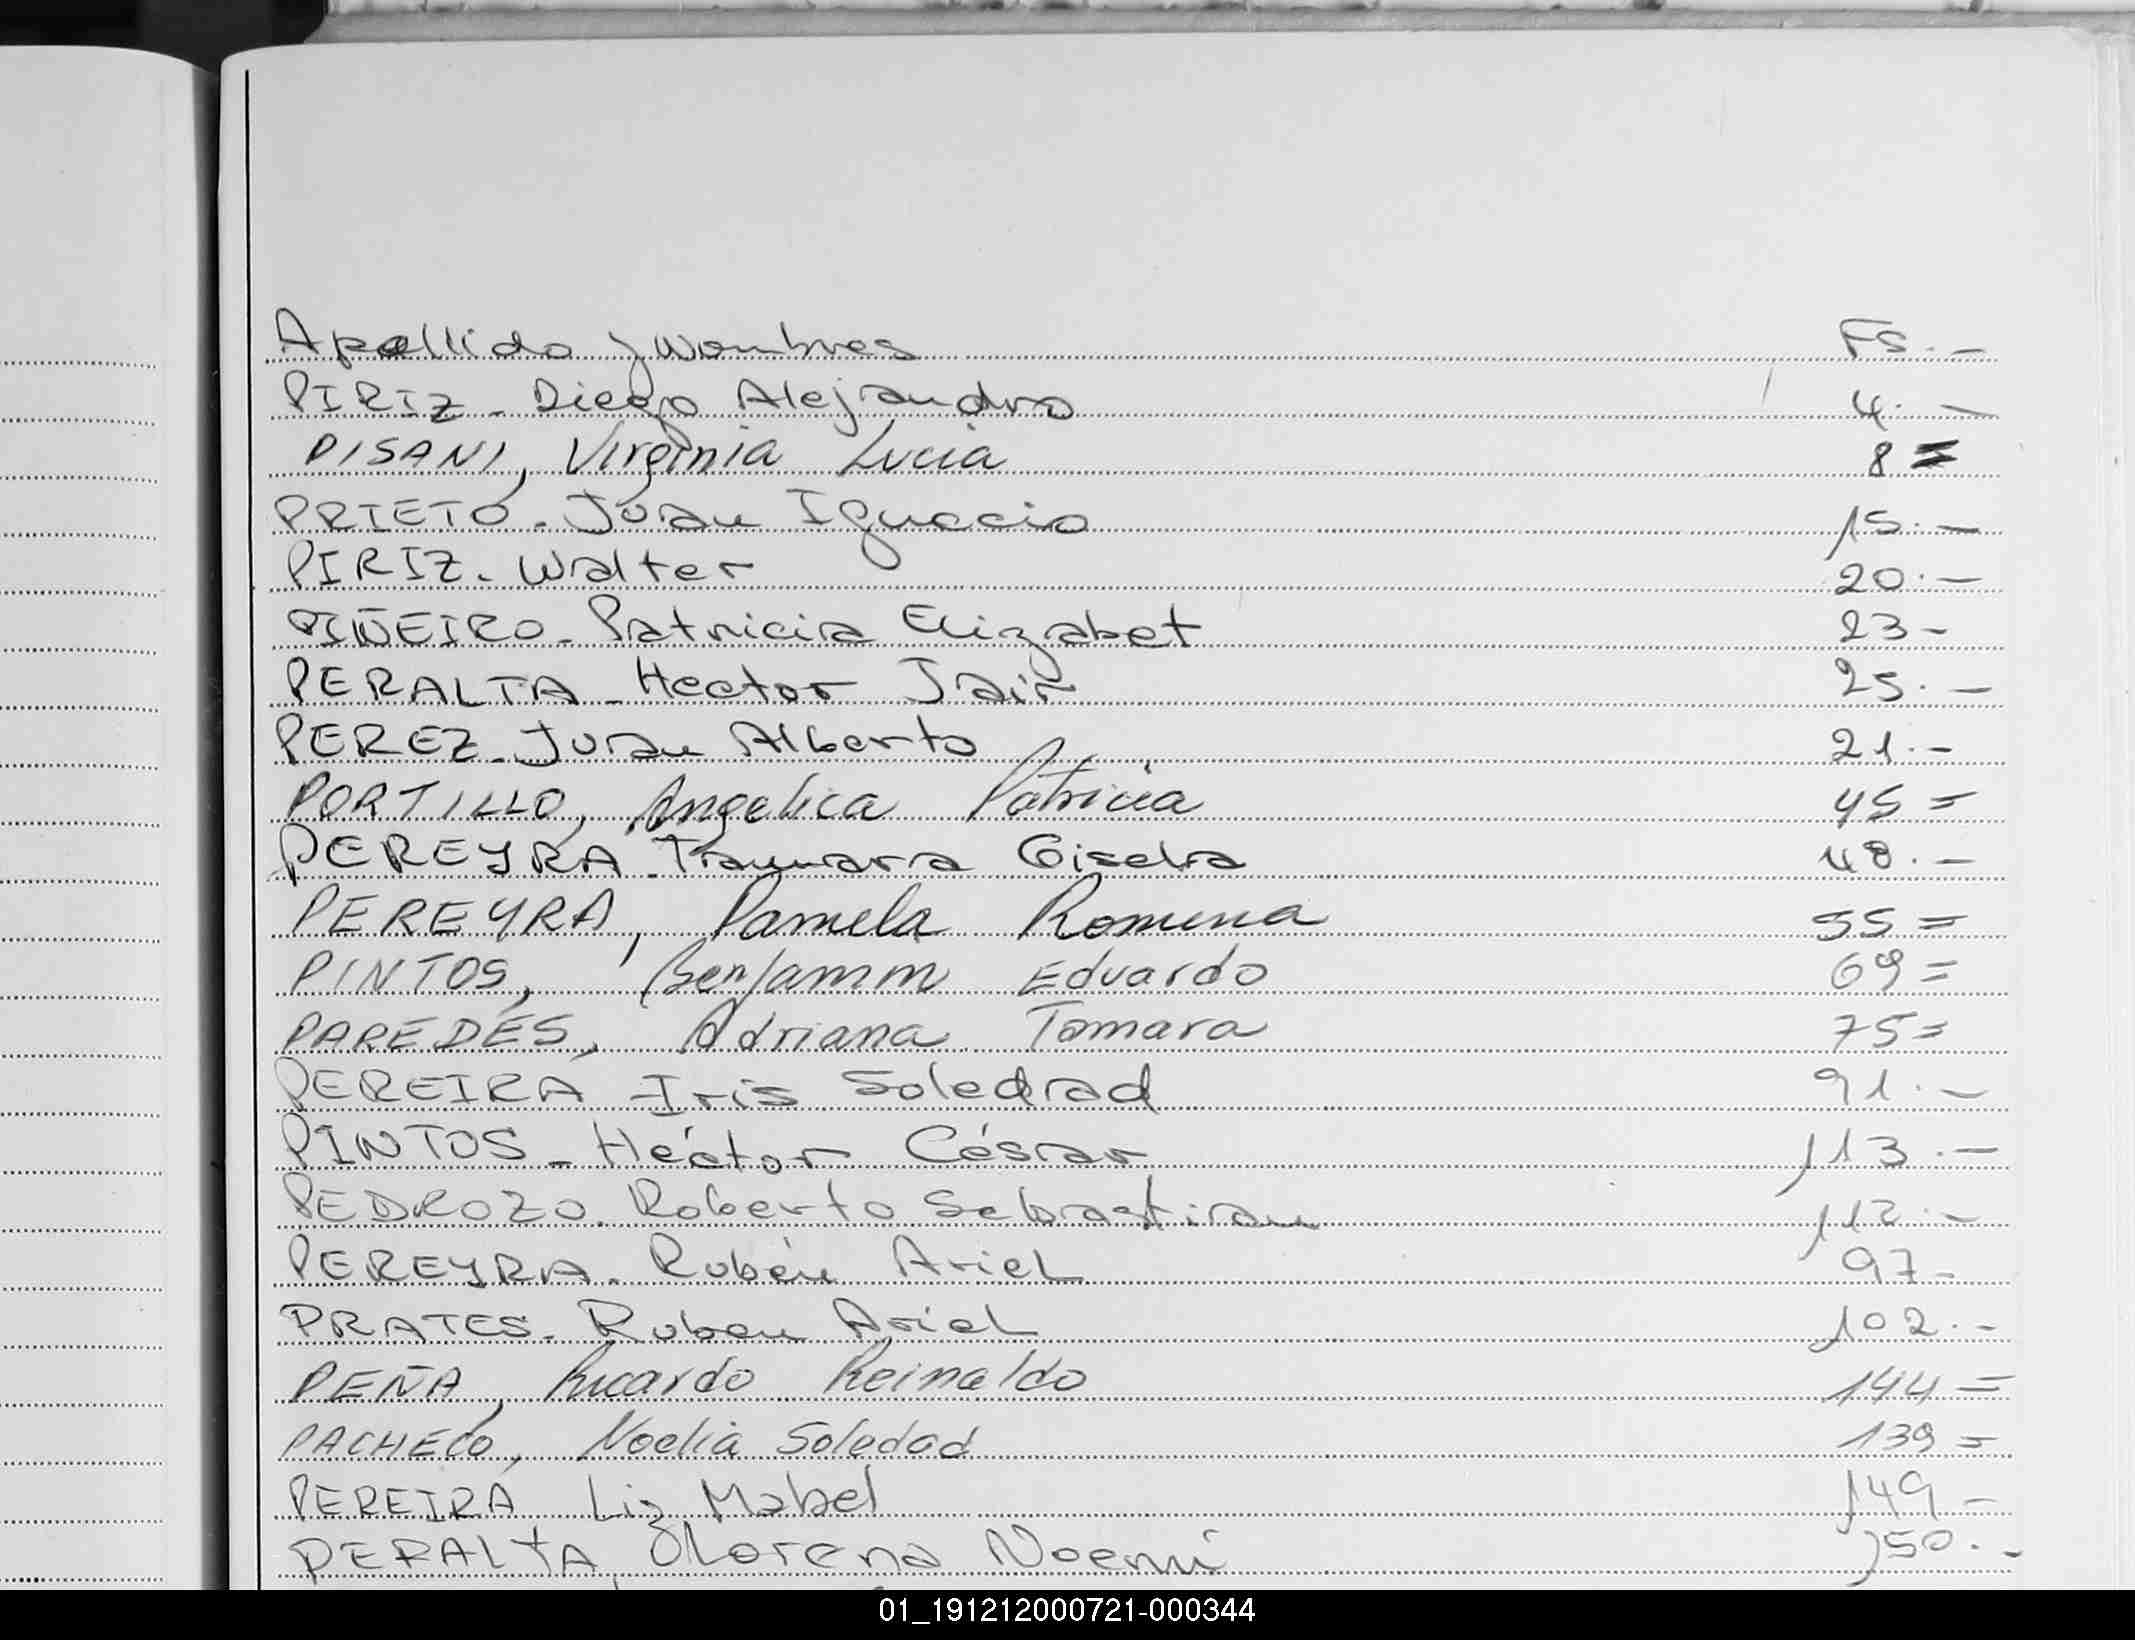 Apellido y Nombres Fs.-
PIRIZ - Diego Alejandro 4.-
PISANI, Virginia Lucia 8=
PRIETO - Juan Ignacio 15.-
PIRIZ. Walter 20.-
PIÑEIRO - Patricia Elizabet 23-
PERALTA - Hector Jair 25.-
PEREZ - Juan Alberto 21.-
PORTILLO, Angelica Patricia 45=
PEREYRA - Tamara Gisela 48.-
PEREYRA, Pamela Romina 55=
PINTOS, Benjamin Eduardo 69=
PAREDES, Adriana Tamara 75=
PEREIRA Iris Soledad 91.-
PINTOS - Héctor César 113.-
PEDROZO. Roberto Sebastian 112.-
PEREYRA. Rubén Ariel 97-
PRATES. Ruben Ariel 102.-
PEÑA, Ricardo Reinaldo 144=
PACHECO, Noelia Soledad 139=
PEREIRA Liz Mabel 149-
PERALTA, Lorena Noemi 150.-
01_191212000721-000344